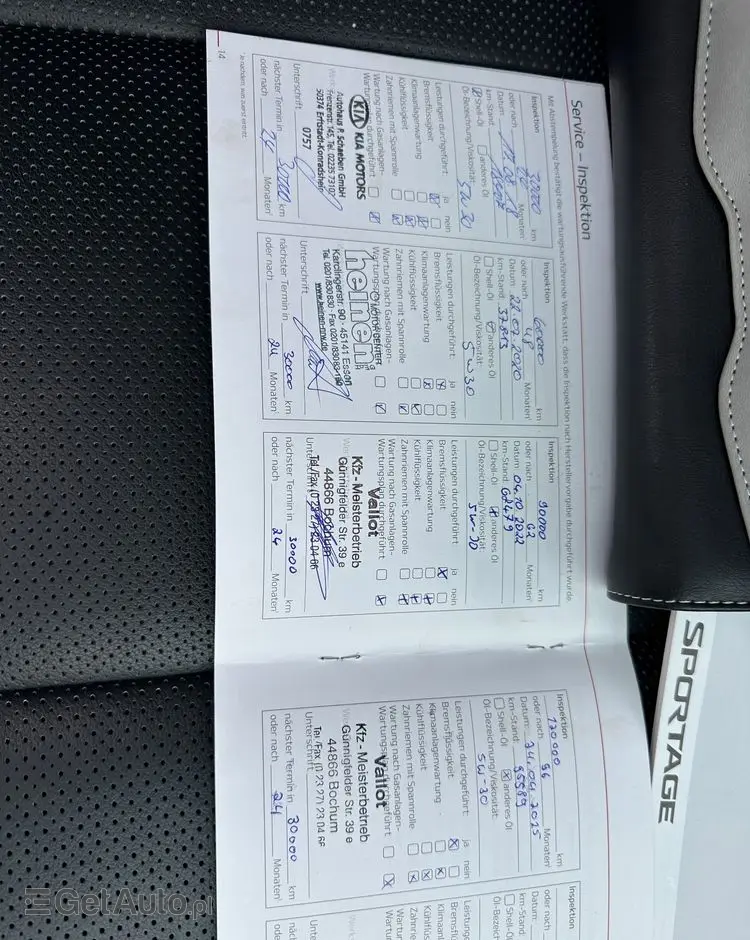 Service – Inspektion
Mit Abstempelung bestätigt die wartungsausführende Werkstatt, dass die Inspektion nach Herstellervorgabe durchgeführt wurde.
Inspektion 30000 km
oder nach Monaten¹
Datum 17.08.18
km-Stand
Shell-Öl anderes Öl
Öl-Bezeichnung/Viskosität:
5W30
Leistungen durchgeführt: ja nein
Bremsflüssigkeit
Klimaanlagenwartung
Kühlflüssigkeit
Zahnriemen mit Spannrolle
Wartung nach Gasanlagen-
Wartungsplan durchgeführt
KIA KIA MOTORS
Autohaus P. Schaeben GmbH
Frenzenstr. 145, Tel. 02235 73107
50374 Erftstadt-Konradsheim
0757
Unterschrift
nächster Termin in 30000 km
oder nach 24 Monaten¹
¹ Je nachdem, was zuerst eintritt
14
Inspektion 60000 km
oder nach 48 Monaten¹
Datum 22.07.2020
km-Stand
Shell-Öl anderes Öl
Öl-Bezeichnung/Viskosität:
5W30
Leistungen durchgeführt: ja nein
Bremsflüssigkeit
Klimaanlagenwartung
Kühlflüssigkeit
Zahnriemen mit Spannrolle
Wartung nach Gasanlagen-
heinen
MOTOR CENTER
45141 Essen
www.heinen-nrw.de
Unterschrift
nächster Termin in 30000 km
oder nach 24 Monaten¹
Inspektion 90000 km
oder nach Monaten¹
Datum 04.10.2022
km-Stand 62479
Shell-Öl anderes Öl
Öl-Bezeichnung/Viskosität:
5W-30
Leistungen durchgeführt: ja nein
Bremsflüssigkeit
Klimaanlagenwartung
Kühlflüssigkeit
Zahnriemen mit Spannrolle
Wartung nach Gasanlagen-
Wartungsplan durchgeführt
Vallot
Kfz - Meisterbetrieb
Günnigfelder Str. 39 e
44866 Bochum
nächster Termin in 30000 km
oder nach 24 Monaten¹
Inspektion 120000 km
oder nach 96 Monaten¹
Datum: 24.04.2025
km-Stand 95589
Shell-Öl anderes Öl
Öl-Bezeichnung/Viskosität:
5W-30
Leistungen durchgeführt: ja nein
Bremsflüssigkeit
Klimaanlagenwartung
Kühlflüssigkeit
Zahnriemen mit Spannrolle
Wartung nach Gasanlagen-
Vallot
Kfz - Meisterbetrieb
Günnigfelder Str. 39 e
44866 Bochum
Tel./Fax (0 23 27) 23 04 66
Unterschrift
nächster Termin in 30000 km
oder nach 24 Monaten¹
Inspektion
oder nach
Datum:
km-Stand
Shell-Öl
SPORTAGE
GetAuto.pl